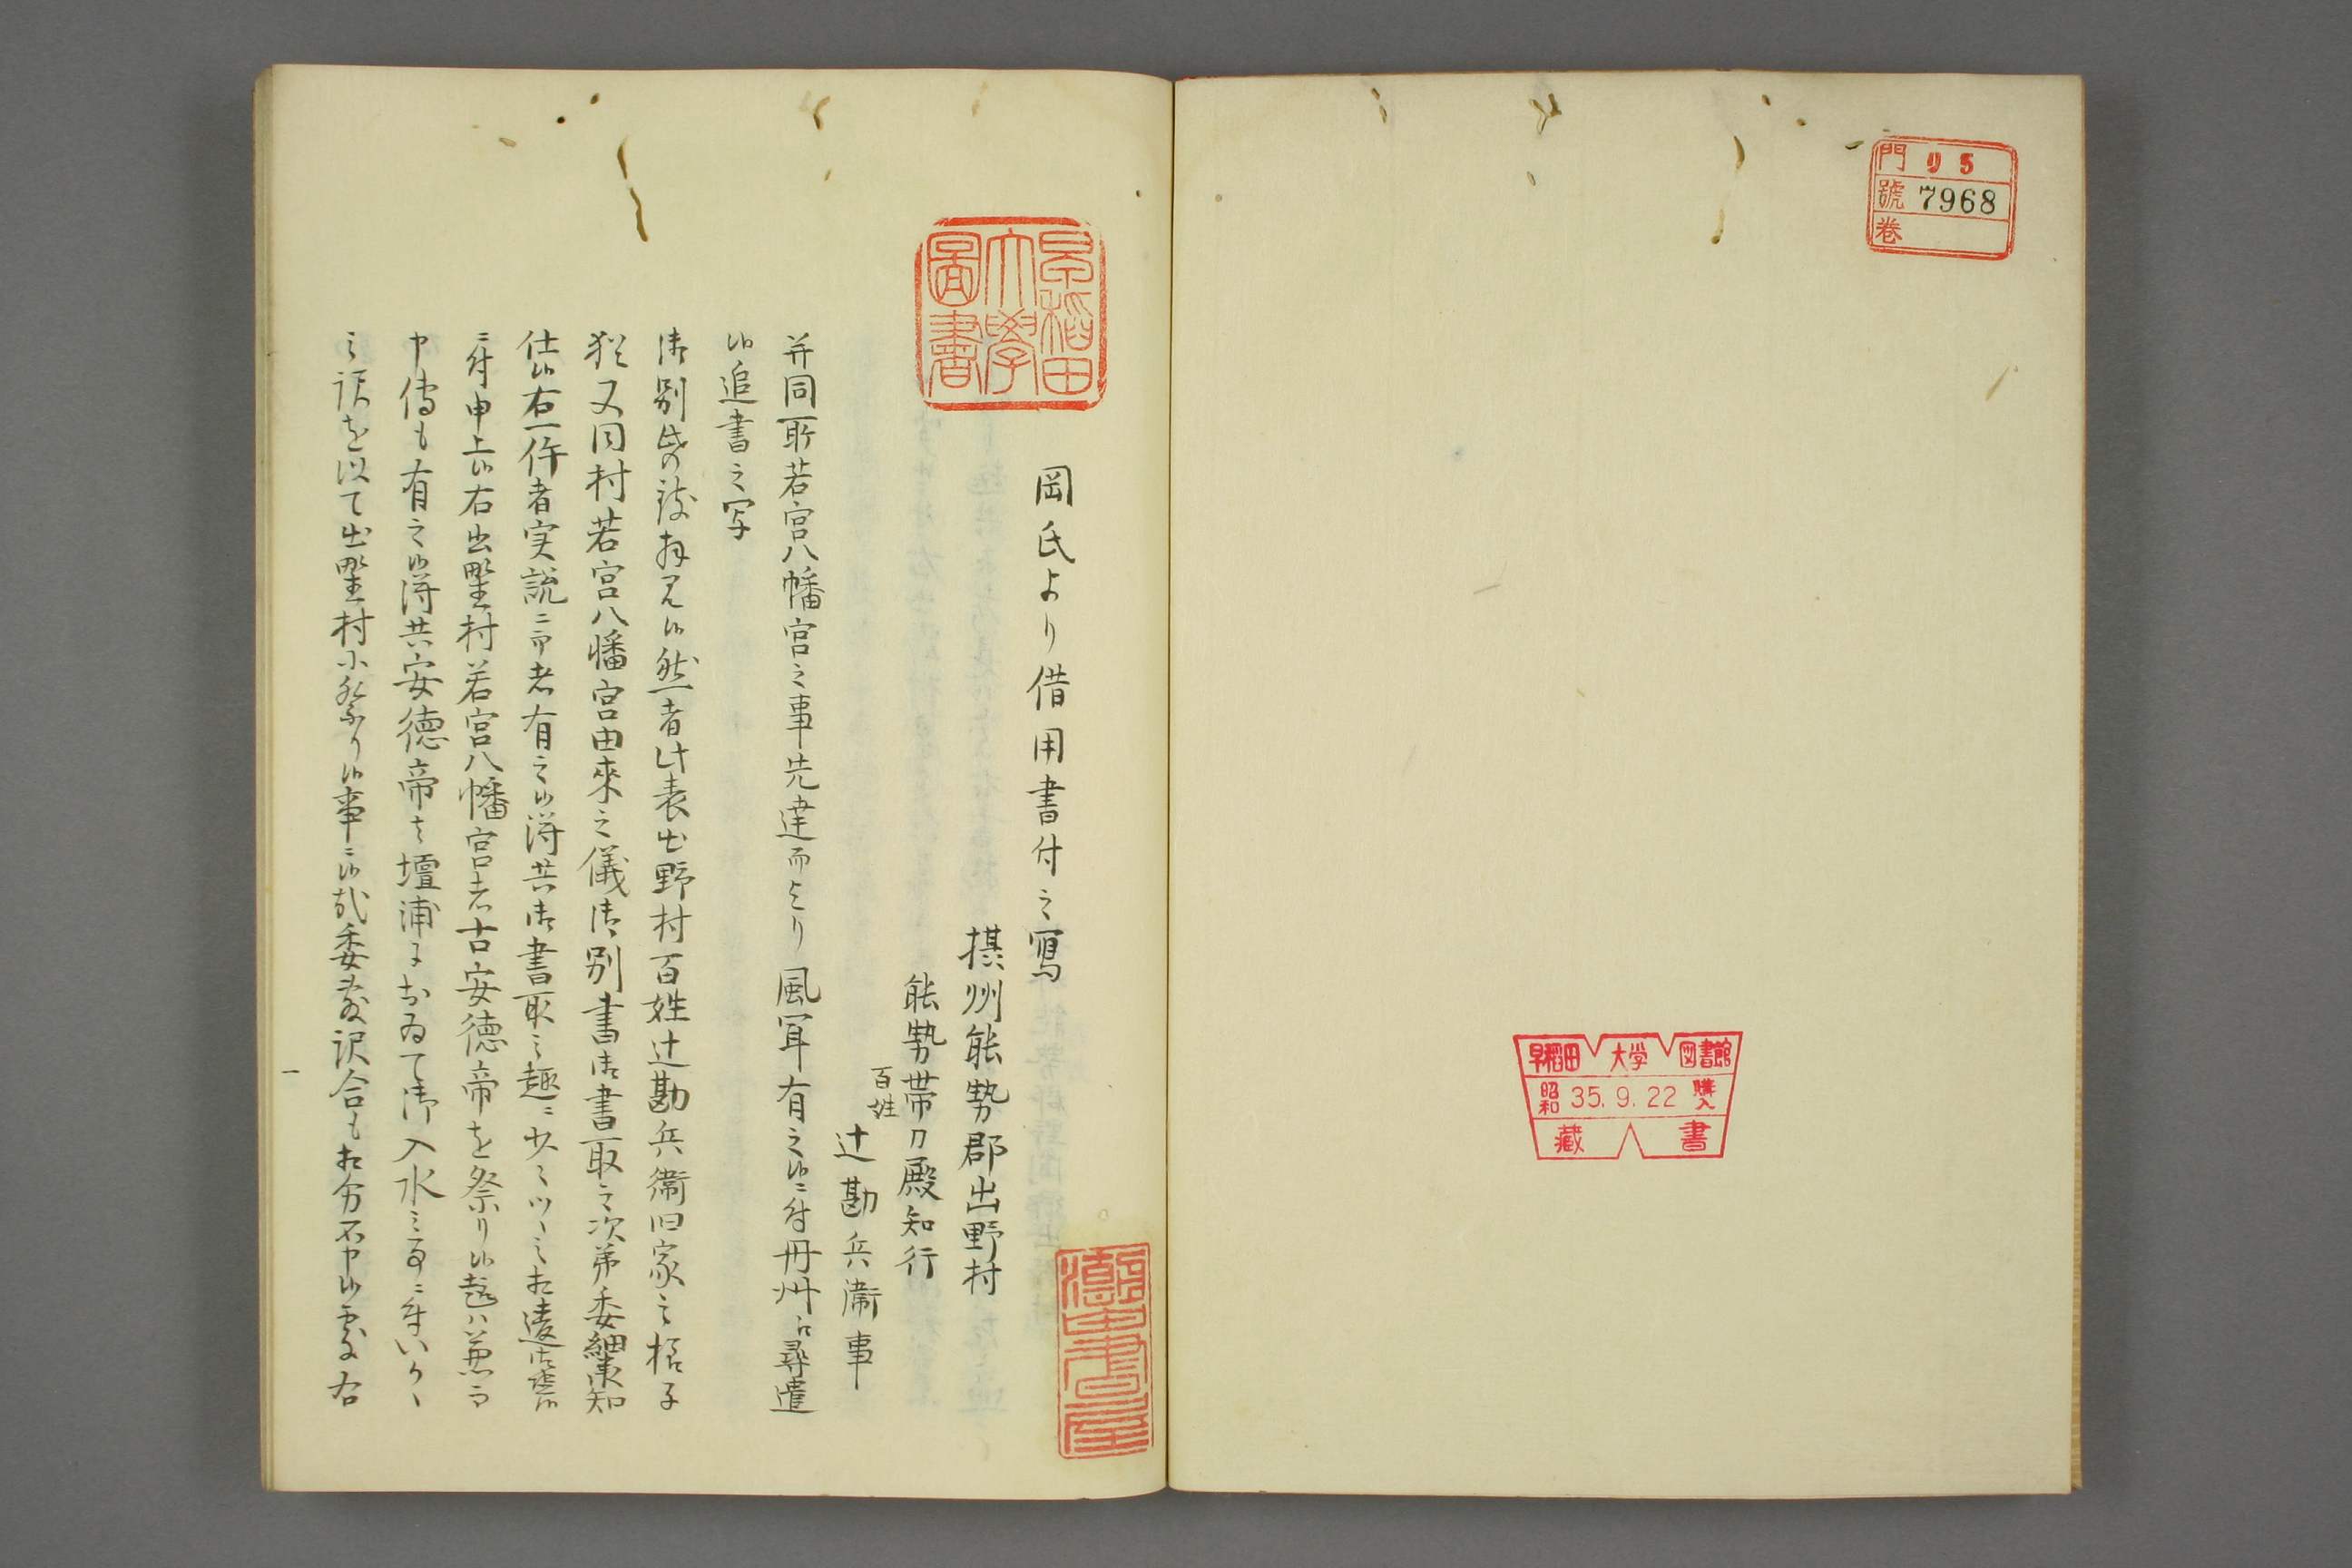 門 リ5
號 7968
卷
早稲田大学図書館
昭和 35.9.22 購入
藏書
早稲田大學圖書
岡氏より借用書付之寫
摂州能勢郡出野村
能勢帯刀殿知行
百姓
辻勘兵衛事
并同所若宮八幡宮之事先達而より風耳有之候ニ付丹州江尋遣
候追書之写
御別帋致拝見候然者此表出野村百姓辻勘兵衛旧家之様子
猶又同村若宮八幡宮由来之儀御別書御書取之次第委細承知
仕候右一件者実説ニ而者有之候得共御書取之趣ニ少々ツヽ之相違御座候
ニ付申上候右出野村若宮八幡宮者古安徳帝を祭り候趣ハ兼而
申傳も有之候得共安徳帝者壇浦におゐて御入水之事ニ付いか
之訳を以て出野村に祭り候事ニ候哉委敷訳合も相分不申候處右
一